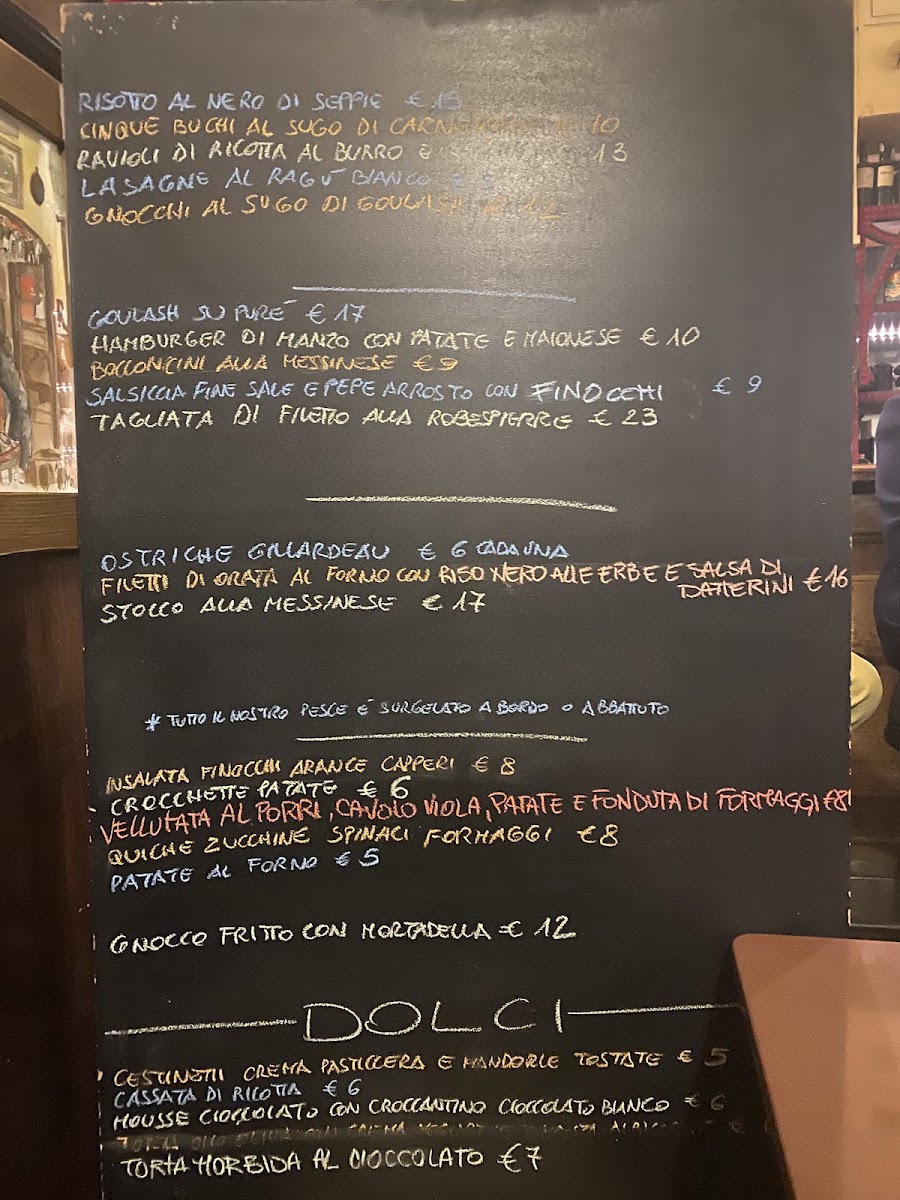 RISOTTO AL NERO DI SEPPIE € 15
CINQUE BUCHI AL SUGO DI 10
RAVIOLI DI RICOTTA AL BURRO E 13
LASAGNE AL RAGÚ BIANCO €
GNOCCHI AL SUGO DI GOULASH € 12
GOULASH SU PURÉ € 17
HAMBURGER DI MANZO CON PATATE E MAIONESE € 10
BOCCONCINI ALLA MESSINESE € 9
SALSICCIA FINE SALE E PEPE ARROSTO CON FINOCCHI € 9
TAGLIATA DI FILETTO ALLA ROBESPIERRE € 23
OSTRICHE GILLARDEAU € 6 CADAUNA
FILETTI DI ORATA AL FORNO CON RISO NERO ALLE ERBE E SALSA DI
DATTERINI € 16
STOCCO ALLA MESSINESE € 17
* TUTTO IL NOSTRO PESCE É SURGELATO A BORDO O ABBATTUTO
INSALATA FINOCCHI ARANCE CAPPERI € 8
CROCCHETTE PATATE € 6
VELLUTATA AL PORRI, CAVOLO VIOLA, PATATE E FONDUTA DI FORMAGGI €8
QUICHE ZUCCHINE SPINACI FORMAGGI €8
PATATE AL FORNO € 5
GNOCCO FRITTO CON MORTADELLA € 12
DOLCI
CESTINETTI CREMA PASTICCERA E MANDORLE TOSTATE € 5
CASSATA DI RICOTTA € 6
MOUSSE CIOCCOLATO CON CROCCANTINO CIOCCOLATO BIANCO € 6
TORTA MORBIDA AL CIOCCOLATO € 7